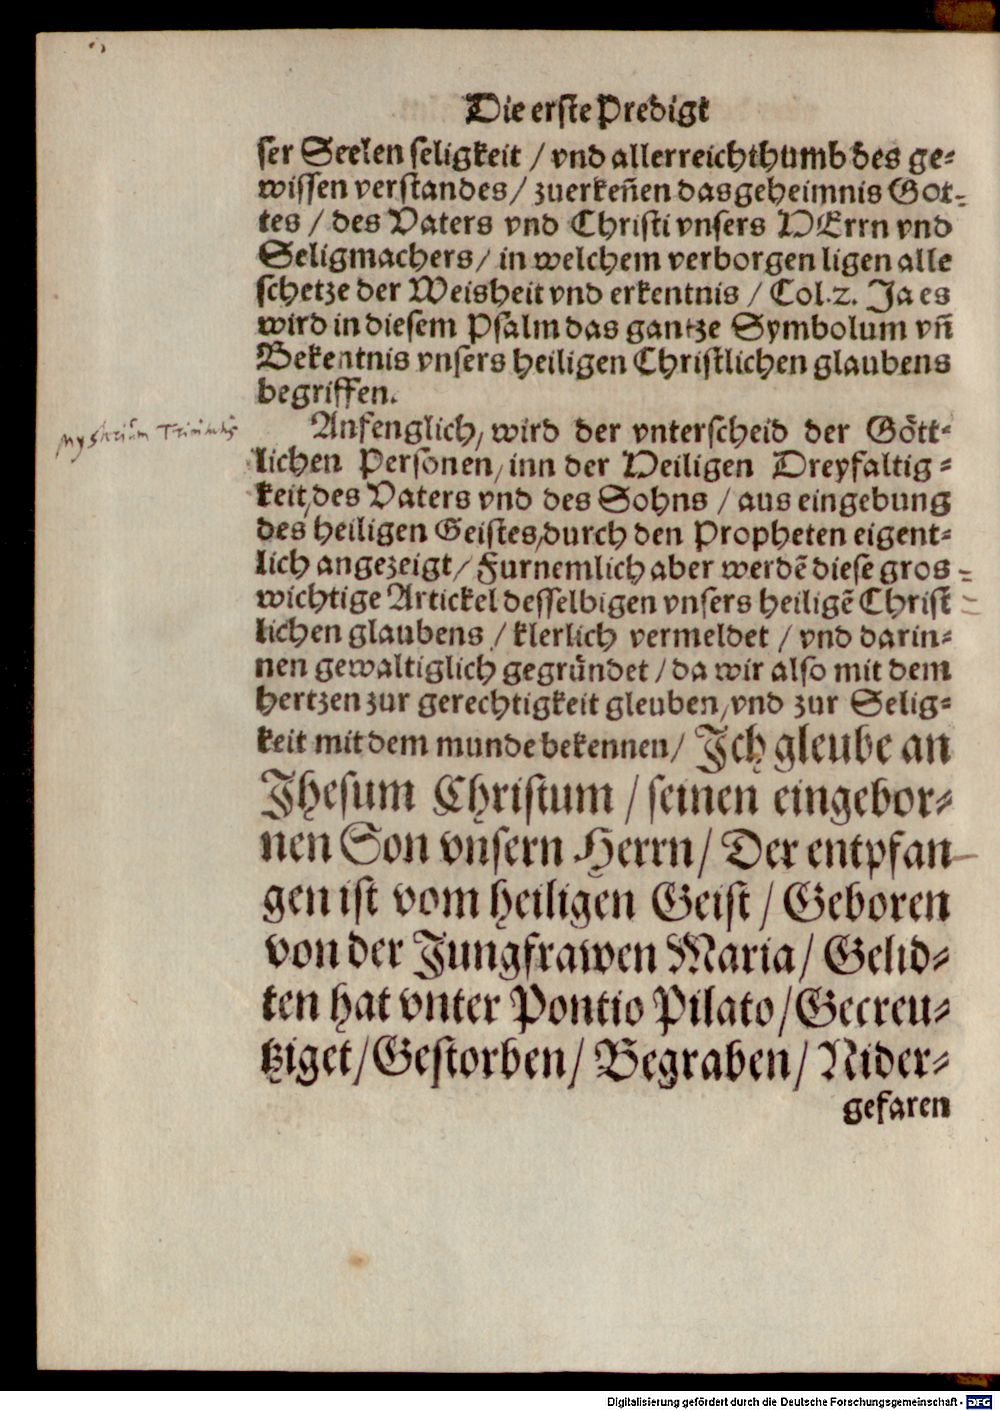 Die erste Predigt
ser Seelen seligkeit / vnd allerreichthumb des ge-
wissen verstandes / zuerkeñen das geheimnis Got-
tes / des Vaters vnd Christi vnsers HErrn vnd
Seligmachers / in welchem verborgen ligen alle
schetze der Weisheit vnd erkentnis / Col.2. Ja es
wird in diesem Psalm das gantze Symbolum vñ
Bekentnis vnsers heiligen Christlichen glaubens
begriffen.
Mysterium Trinitatis
Anfenglich / wird der vnterscheid der Gött-
lichen Personen / inn der Heiligen Dreyfaltig-
keit / des Vaters vnd des Sohns / aus eingebung
des heiligen Geistes / durch den Propheten eigent-
lich angezeigt / Furnemlich aber werdẽ diese gros-
wichtige Artickel desselbigen vnsers heiligẽ Christ-
lichen glaubens / klerlich vermeldet / vnd darin-
nen gewaltiglich gegründet / da wir also mit dem
hertzen zur gerechtigkeit gleuben / vnd zur Selig-
keit mit dem munde bekennen / Ich gleube an
Jhesum Christum / seinen eingebor-
nen Son vnsern Herrn / Der entpfan-
gen ist vom heiligen Geist / Geboren
von der Jungfrawen Maria / Gelid-
ten hat vnter Pontio Pilato / Gecreu-
tziget / Gestorben / Begraben / Nider-
gefaren
Digitalisierung gefördert durch die Deutsche Forschungsgemeinschaft - DFG